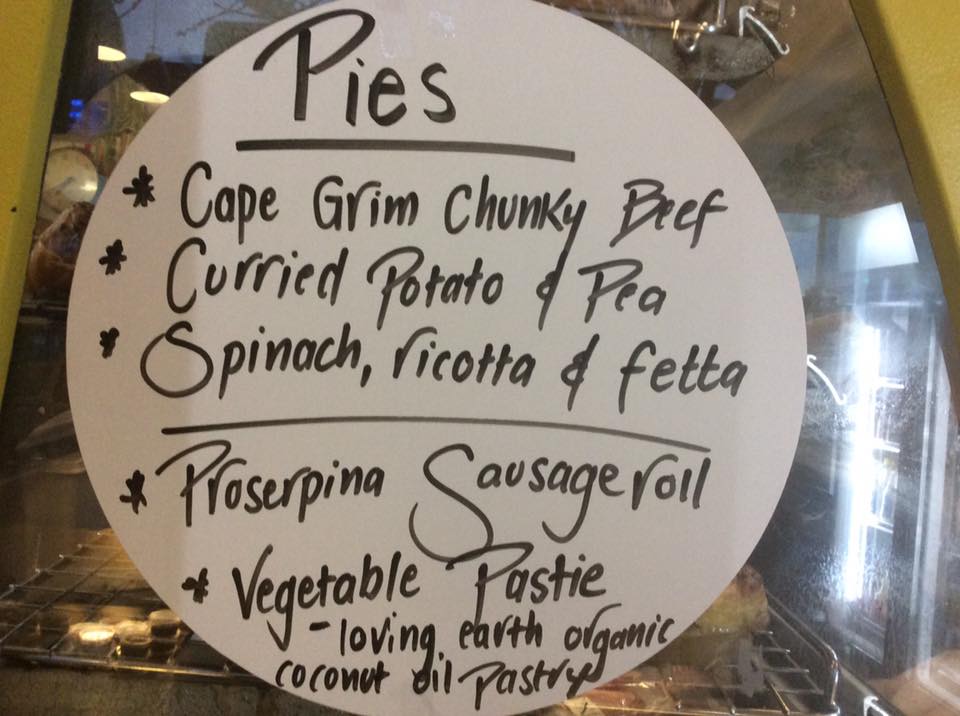 Pies
* Cape Grim Chunky Beef
* Curried Potato & Pea
* Spinach, ricotta & fetta
* Proserpina Sausage roll
* Vegetable Pastie
- loving earth organic
coconut oil Pastry